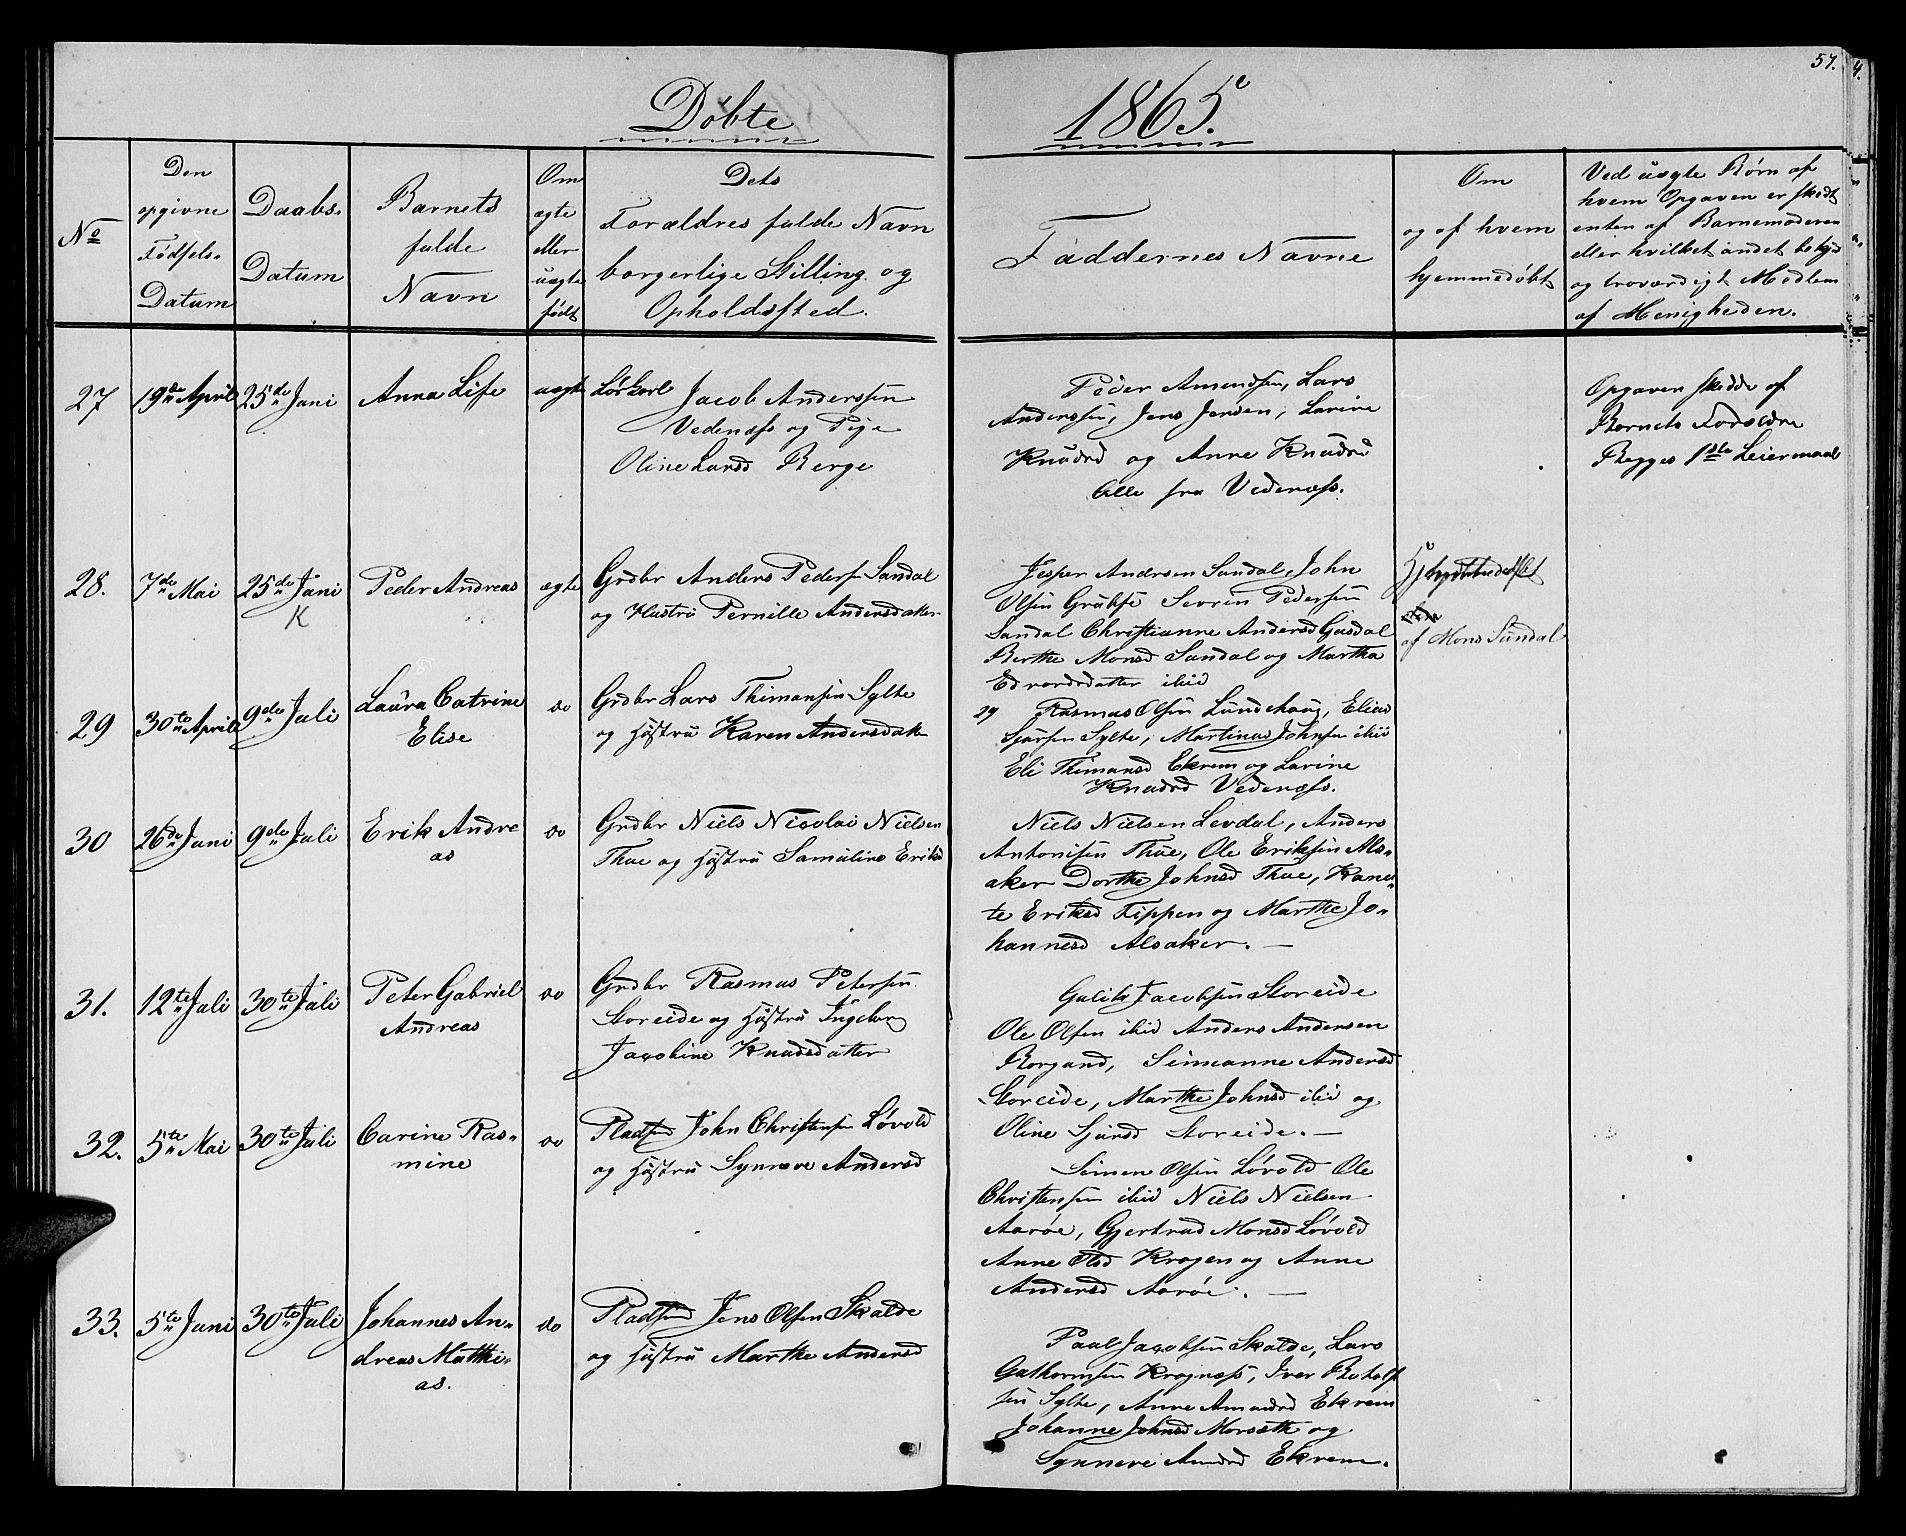 57.
Døbte 1865.
No
Den opgivne Fødsels-Datum
Daabs-Datum
Barnets fulde Navn
Om ægte eller uægte født
Dets Forældres fulde Navn borgerlige Stilling og Opholdssted.
Faddernes Navne
Om og af hvem hjemmedøbt
Ved uægte Børn af hvem Opgaven er skedt enten af Barnemoderen eller hvilket andet bekjendt og troværdigt Medlem af Menigheden.
27
19de April
25de Juni
Anna Lise
uægte
Jacob Anderssen
Vedenæss og Pige
Oline Larsd Berge
Peder Amundsen, Lars
Anderssen, Jens Jensen, Larine
Knudsd og Anne Knudsd
Alle fra Vedenæss.
Opgaven skedde af
Barnets Forældre
Begges 1ste Leiermaal
28.
7de Mai
25de Juni
K
Peder Andreas
ægte
Grdbr Anders Peders Sandal
og Hustru Pernille Andersdaker
Jesper Andersen Sandal, John
Olsen Grubse Sevrin Pedersen
Sandal Christianne Andersd Gusdal
Berthe Monsd Sandal og Martha
Edvardsdatter ibid
af Mons Sandal
29
30te April
9de Juli
Laura Catrine
Elise
do
Grdbr Lars Thimansen Sylte
og Hustru Karen Andersdak
29 Rasmus Olsen Lundehaug, Elias
Sjursen Sylte, Martinus Johnsen ibid
Eli Thimansd Ekrem og Larine
Knudsd Vedenæss.
30
26de Juni
9de Juli
Erik Andre
as
do
Grdbr Niels Nicolai Nielsen
Thue og Hustru Samuline Eriksd
Niels Nielsen Levdal, Anders
Antonisen Thue, Ole Eriksen Als-
aker Dorthe Johnsd Thue, Kane-
te Eriksd Tippen og Marthe Jo-
hannesd Alsaker. —
31.
12te Juli
30te Juli
Peter Gabriel
Andreas
do
Grdbr Rasmus Petersen
Storeide og Hustru Ingeborg
Jacobine Knudsdatter
Jacobsen Storeide
Ole Olsen ibid Anders Andersen
Borgund, Simianne Andersd
Storeide, Marthe Johnsd ibid og
Oline Sjursd Storeide. —
32.
5te Mai
30te Juli
Carine Ras-
mine
do
Pladsm John Christensen Løvold
og Hustru Synneve Andersd
Simen Olsen Løvold Ole
Christensen ibid Niels Nielsen
Aarøe, Gjertrud Monsd Løvold
Anne Olsd Krogen og Anne
Andersd Aarøe. —
33.
5te Juni
30te Juli
Johannes An-
dreas Matthi-
as.
do
Pladsm Jens Olsen Skalde
og Hustru Marthe Andersd
Paal Jacobsen Skalde, Lars
Guthormsen Krognæss, Iver Botolf
sen Sylte, Anne Amundsd Ekrem
Johanne Johnsd Morsæth og
Synneve Amdsd Ekrem.